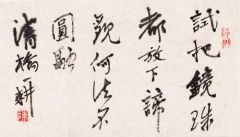 試把鏡珠
都放下請
觀何法不
圓融
清榆耕